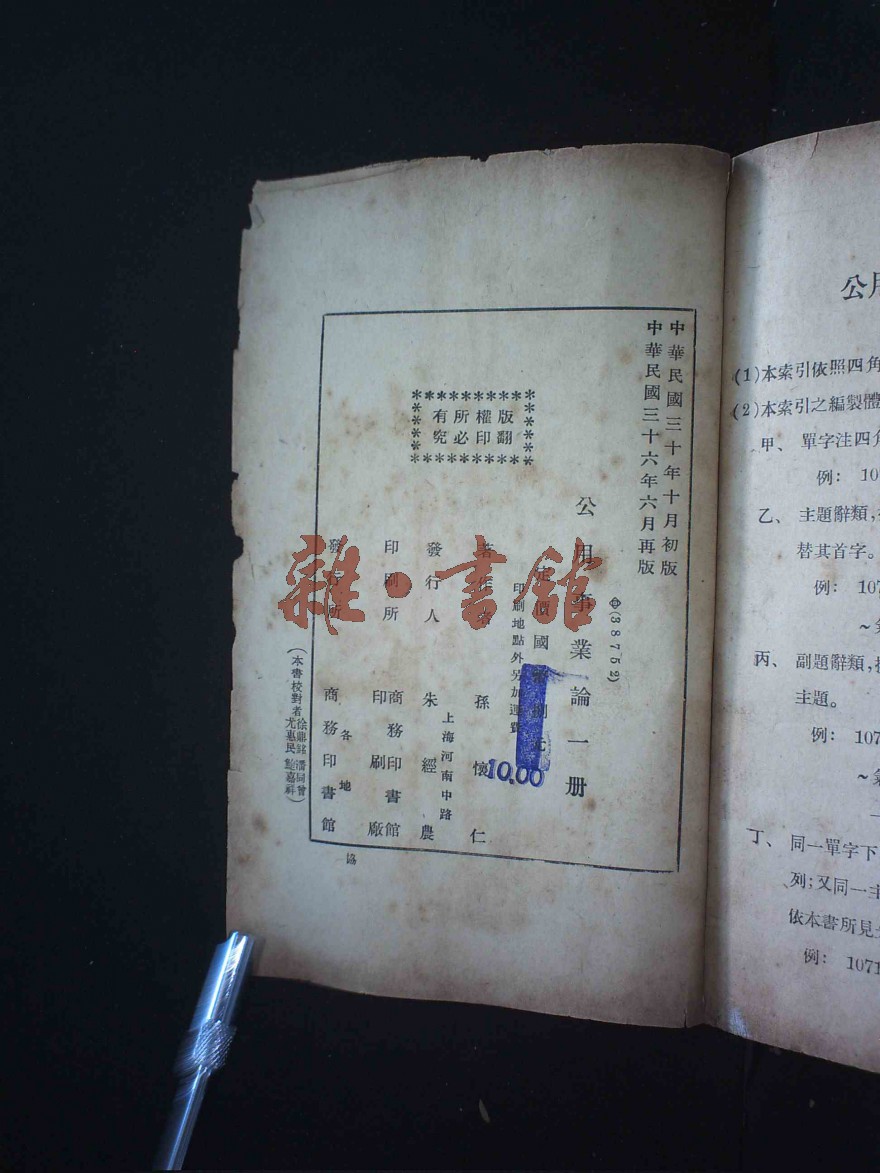 中華民國三十年十月初版
中華民國三十六年六月再版
(38752)
公用事業論一册
定價國幣捌元
印刷地點外另加運費
10.00
版權所有
翻印必究
著作者 孫懷仁
發行人 朱經農
上海河南中路
印刷所 商務印書館
印刷廠
發行所 各地
商務印書館
(本書校對者
徐鼎銘 潘同曾
尤惠民 鮑嘉祥)
協
雜·書館
公用
(1)本索引依照四角
(2)本索引之編製體
甲、單字注四角
例: 10
乙、主題辭類,
替其首字。
例: 107
丙、副題辭類,
主題。
例: 107
丁、同一單字下
列;又同一主
依本書所見
例: 1071